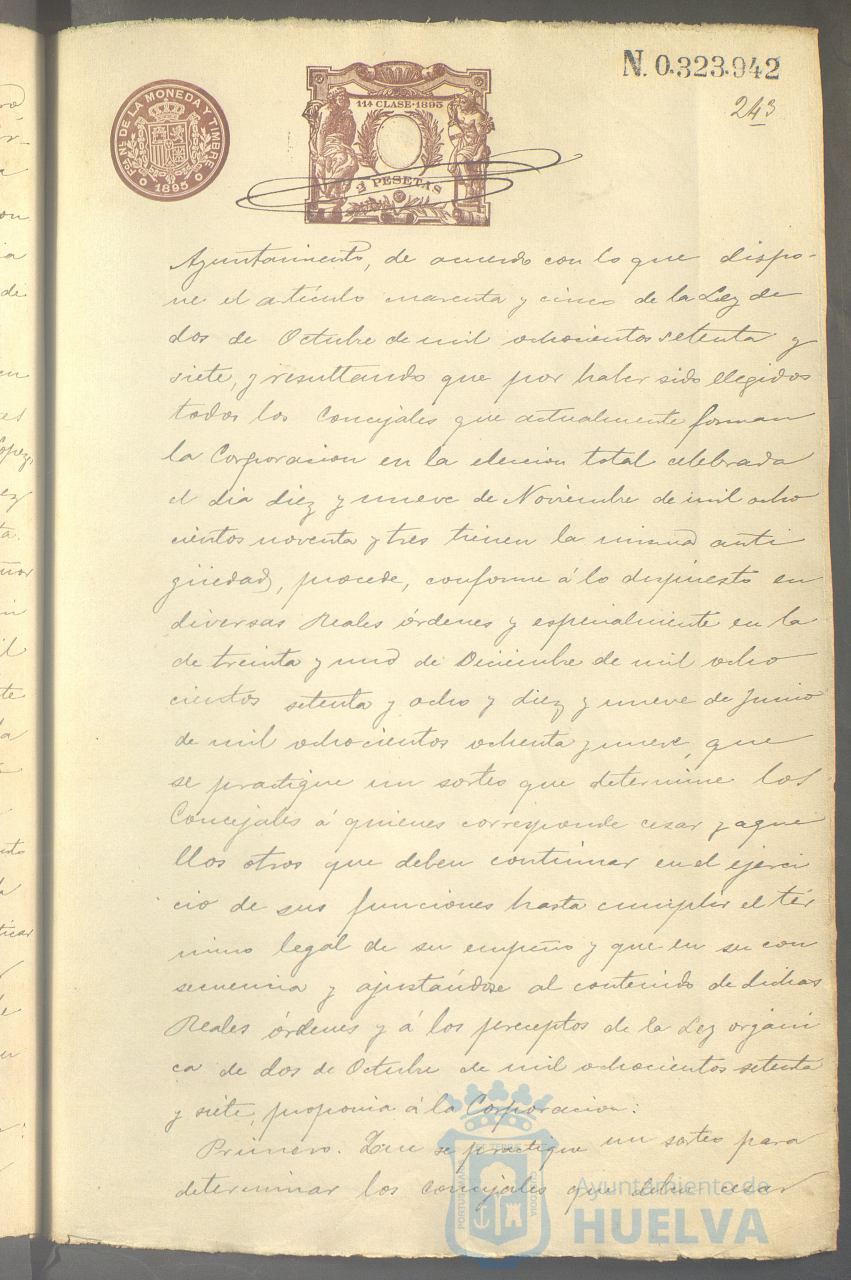 N. 0.323.942
243
FCA NL DE LA MONEDA Y TIMBRE
1895
11ª CLASE-1895
2 PESETAS
Ayuntamiento, de acuerdo con lo que dispo-
ne el artículo cuarenta y cinco de la Ley de
dos de Octubre de mil ochocientos setenta y
siete, y resultando que por haber sido elegidos
todos los Concejales que actualmente forman
la Corporacion en la eleccion total celebrada
el dia diez y nueve de Noviembre de mil ocho
cientos noventa y tres tienen la misma anti
güedad, procede, conforme á lo dispuesto en
diversas Reales órdenes y especialmente en la
de treinta y uno de Diciembre de mil ocho
cientos setenta y ocho y diez y nueve de Junio
de mil ochocientos ochenta y nueve, que
se practique un sorteo que determine los
Concejales á quienes corresponde cesar y aque
llos otros que deben continuar en el ejerci
cio de sus funciones hasta cumplir el tér
mino legal de su empeño y que en su con
secuencia y ajustándose al contenido de dichas
Reales órdenes y á los preceptos de la Ley orgáni
ca de dos de Octubre de mil ochocientos setenta
y siete, proponia á la Corporacion:
Primero. Que se practique un sorteo para
determinar los concejales que deben cesar
Ayuntamiento de
HUELVA